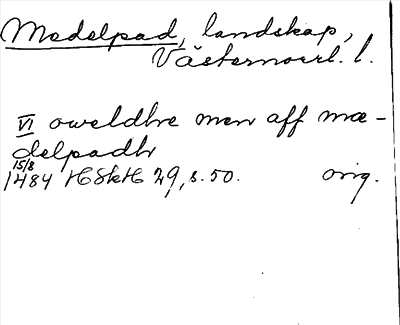 Medelpad, landskap,
Västernorrl. l.
VI oweldhe men aff mæ-
delpadh
15/8
1484 HSkH 29, s. 50. orig.